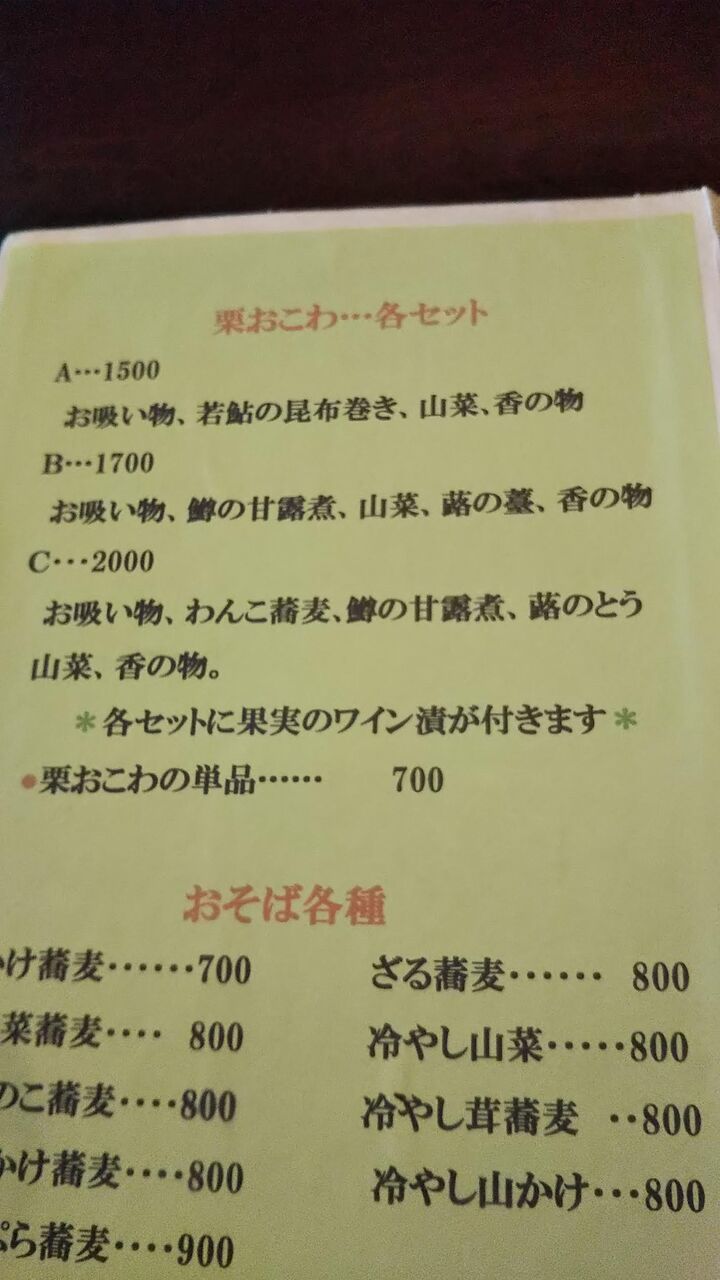 栗おこわ…各セット
A…1500
お吸い物、若鮎の昆布巻き、山菜、香の物
B…1700
お吸い物、鱒の甘露煮、山菜、蕗の薹、香の物
C…2000
お吸い物、わんこ蕎麦、鱒の甘露煮、蕗のとう
山菜、香の物。
＊各セットに果実のワイン漬が付きます＊
●栗おこわの単品…… 700
おそば各種
け蕎麦……700 ざる蕎麦…… 800
菜蕎麦‥‥ 800 冷やし山菜‥‥‥800
のこ蕎麦‥‥800 冷やし茸蕎麦 ‥800
かけ蕎麦‥‥800 冷やし山かけ…800
ぷら蕎麦‥‥900